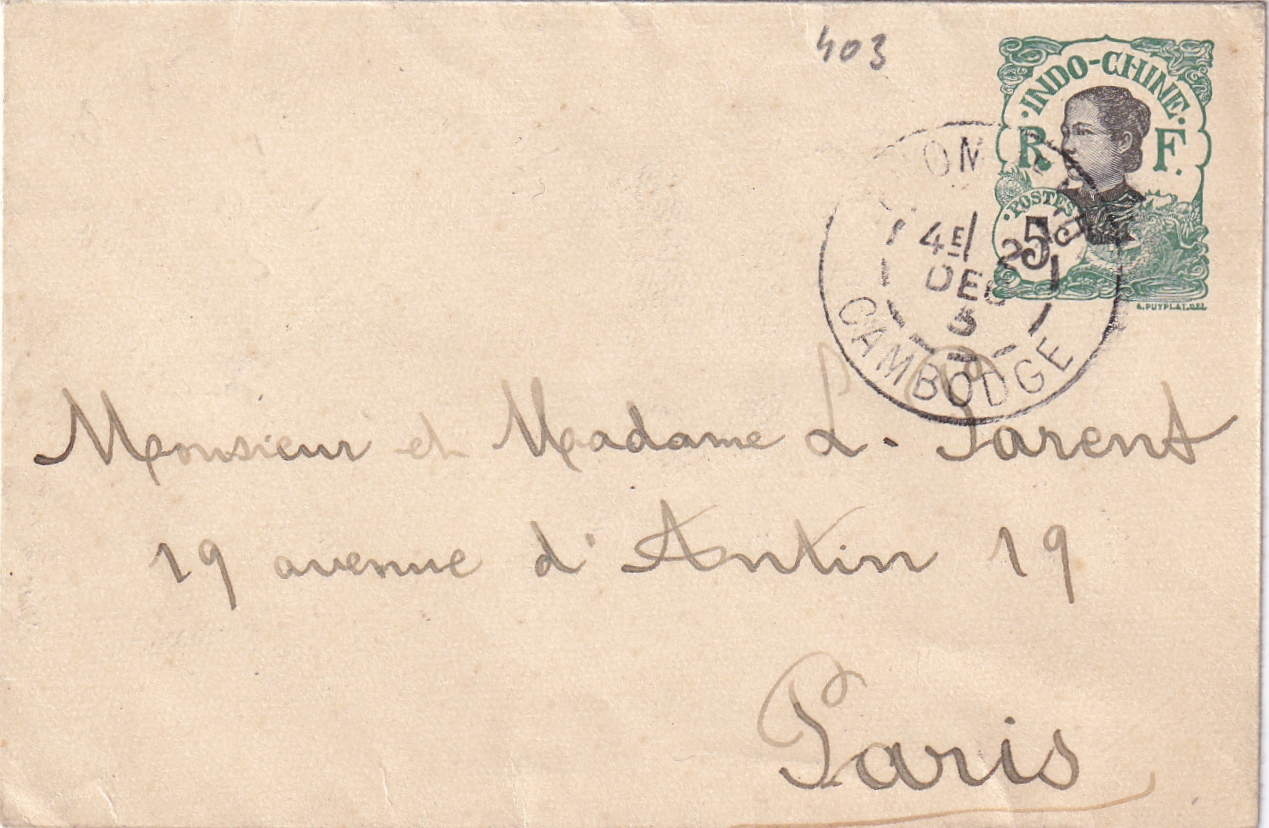 403
·INDO-CHINE·
R F.
·POSTES
5
A. PUYPLAT. DEL.
4E
DEC
CAMBODGE
Monsieur et Madame L. Parent
19 avenue d'Antin 19
Paris